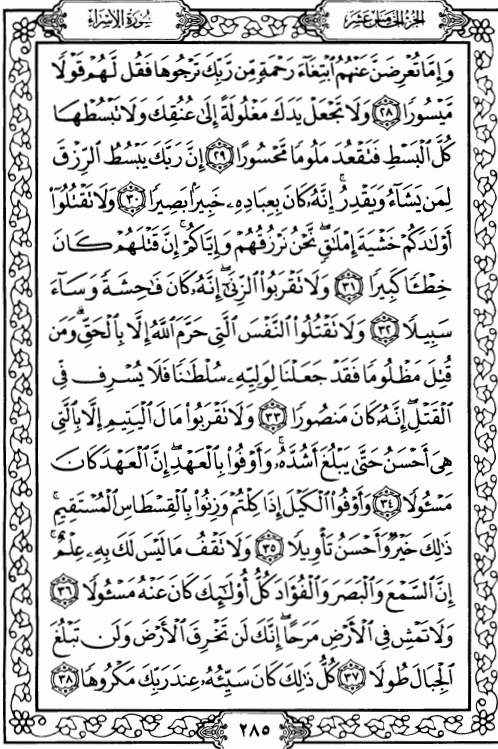 سُورَةُ الإِسْرَاءِ
الجُزْءُ الخَامِسَ عَشَرَ
وَإِمَّا تُعْرِضَنَّ عَنْهُمُ ٱبْتِغَآءَ رَحْمَةٍ مِّن رَّبِّكَ تَرْجُوهَا فَقُل لَّهُمْ قَوْلًا
مَّيْسُورًا ٢٨ وَلَا تَجْعَلْ يَدَكَ مَغْلُولَةً إِلَىٰ عُنُقِكَ وَلَا تَبْسُطْهَا
كُلَّ ٱلْبَسْطِ فَتَقْعُدَ مَلُومًا مَّحْسُورًا ٢٩ إِنَّ رَبَّكَ يَبْسُطُ ٱلرِّزْقَ
لِمَن يَشَآءُ وَيَقْدِرُ ۚ إِنَّهُۥ كَانَ بِعِبَادِهِۦ خَبِيرًۢا بَصِيرًا ٣٠ وَلَا تَقْتُلُوٓا۟
أَوْلَٰدَكُمْ خَشْيَةَ إِمْلَٰقٍ ۖ نَّحْنُ نَرْزُقُهُمْ وَإِيَّاكُمْ ۚ إِنَّ قَتْلَهُمْ كَانَ
خِطْـًٔا كَبِيرًا ٣١ وَلَا تَقْرَبُوا۟ ٱلزِّنَىٰٓ ۖ إِنَّهُۥ كَانَ فَٰحِشَةً وَسَآءَ
سَبِيلًا ٣٢ وَلَا تَقْتُلُوا۟ ٱلنَّفْسَ ٱلَّتِى حَرَّمَ ٱللَّهُ إِلَّا بِٱلْحَقِّ ۗ وَمَن
قُتِلَ مَظْلُومًا فَقَدْ جَعَلْنَا لِوَلِيِّهِۦ سُلْطَٰنًا فَلَا يُسْرِف فِّى
ٱلْقَتْلِ ۖ إِنَّهُۥ كَانَ مَنصُورًا ٣٣ وَلَا تَقْرَبُوا۟ مَالَ ٱلْيَتِيمِ إِلَّا بِٱلَّتِى
هِىَ أَحْسَنُ حَتَّىٰ يَبْلُغَ أَشُدَّهُۥ ۚ وَأَوْفُوا۟ بِٱلْعَهْدِ ۖ إِنَّ ٱلْعَهْدَ كَانَ
مَسْـُٔولًا ٣٤ وَأَوْفُوا۟ ٱلْكَيْلَ إِذَا كِلْتُمْ وَزِنُوا۟ بِٱلْقِسْطَاسِ ٱلْمُسْتَقِيمِ ۚ
ذَٰلِكَ خَيْرٌ وَأَحْسَنُ تَأْوِيلًا ٣٥ وَلَا تَقْفُ مَا لَيْسَ لَكَ بِهِۦ عِلْمٌ ۚ
إِنَّ ٱلسَّمْعَ وَٱلْبَصَرَ وَٱلْفُؤَادَ كُلُّ أُو۟لَٰٓئِكَ كَانَ عَنْهُ مَسْـُٔولًا ٣٦
وَلَا تَمْشِ فِى ٱلْأَرْضِ مَرَحًا ۖ إِنَّكَ لَن تَخْرِقَ ٱلْأَرْضَ وَلَن تَبْلُغَ
ٱلْجِبَالَ طُولًا ٣٧ كُلُّ ذَٰلِكَ كَانَ سَيِّئُهُۥ عِندَ رَبِّكَ مَكْرُوهًا ٣٨
٢٨٥